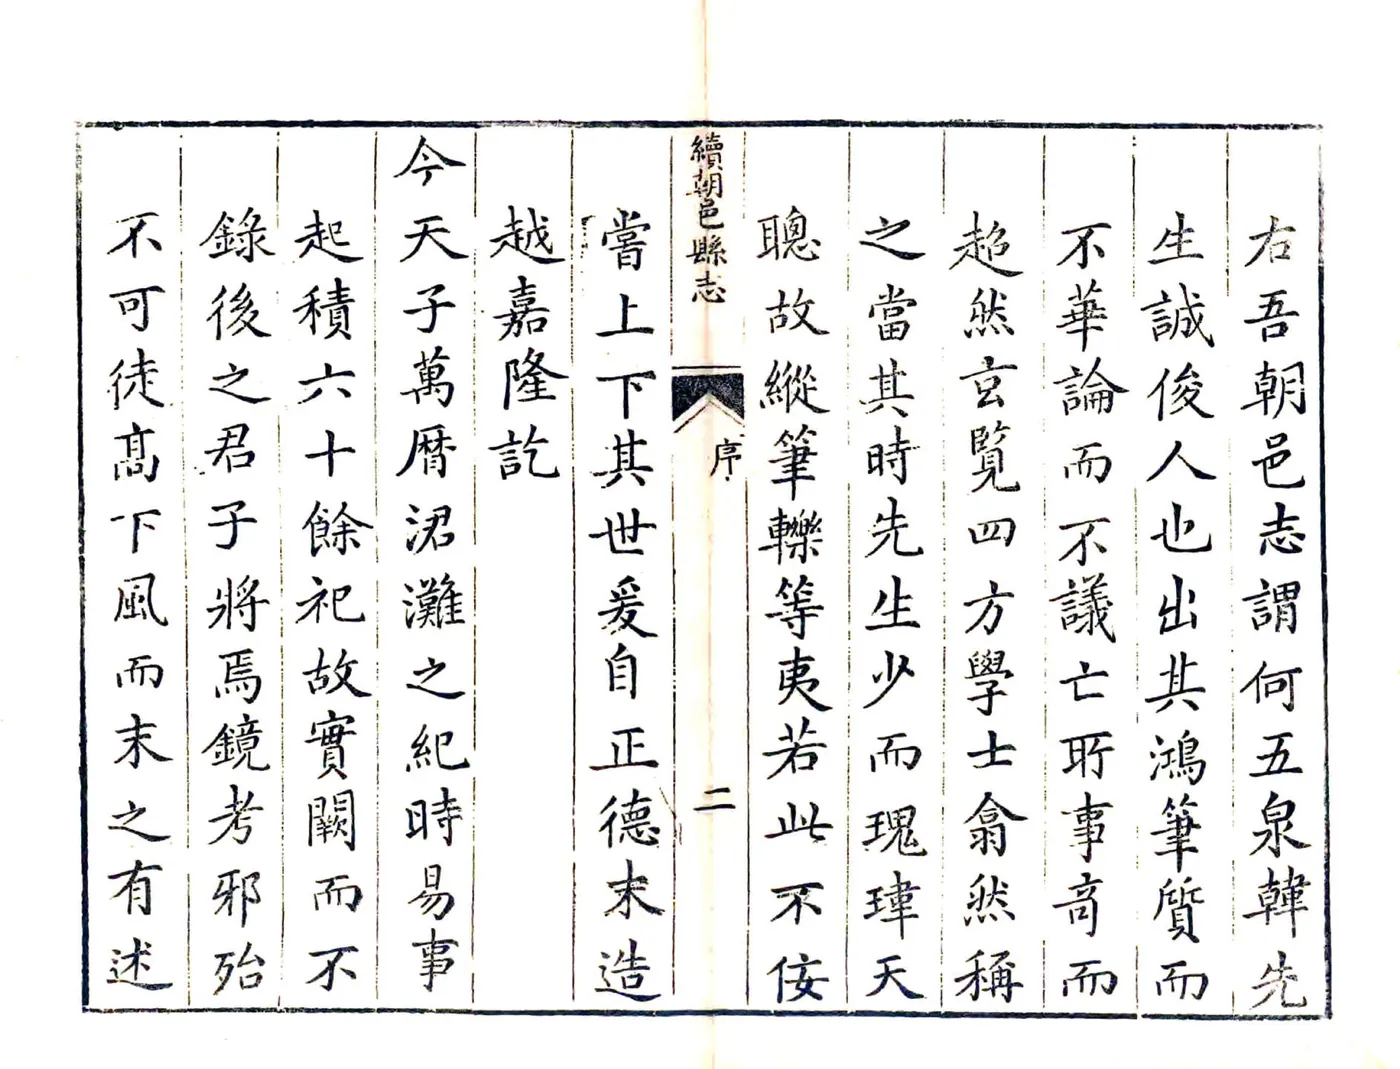 右吾朝邑志謂何五泉韓先
生誠俊人也出其鴻筆質而
不華論而不議亡所事奇而
超然玄覽四方學士翕然稱
之當其時先生少而瑰瑋天
聰故縱筆轢等夷若此不佞
續朝邑縣志
序
二
嘗上下其世爰自正德末造
越嘉隆訖
今天子萬曆涒灘之紀時易事
起積六十餘祀故實闕而不
錄後之君子將焉鏡考邪殆
不可徒高下風而末之有述